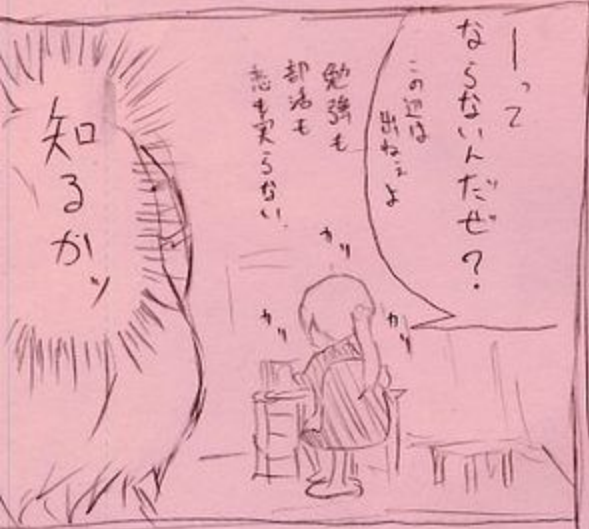 ーって
ならないんだぜ？
この辺は
出ねぇよ
勉強も
部活も
恋も実らない
カッ
カッ
カッ
知るかッ